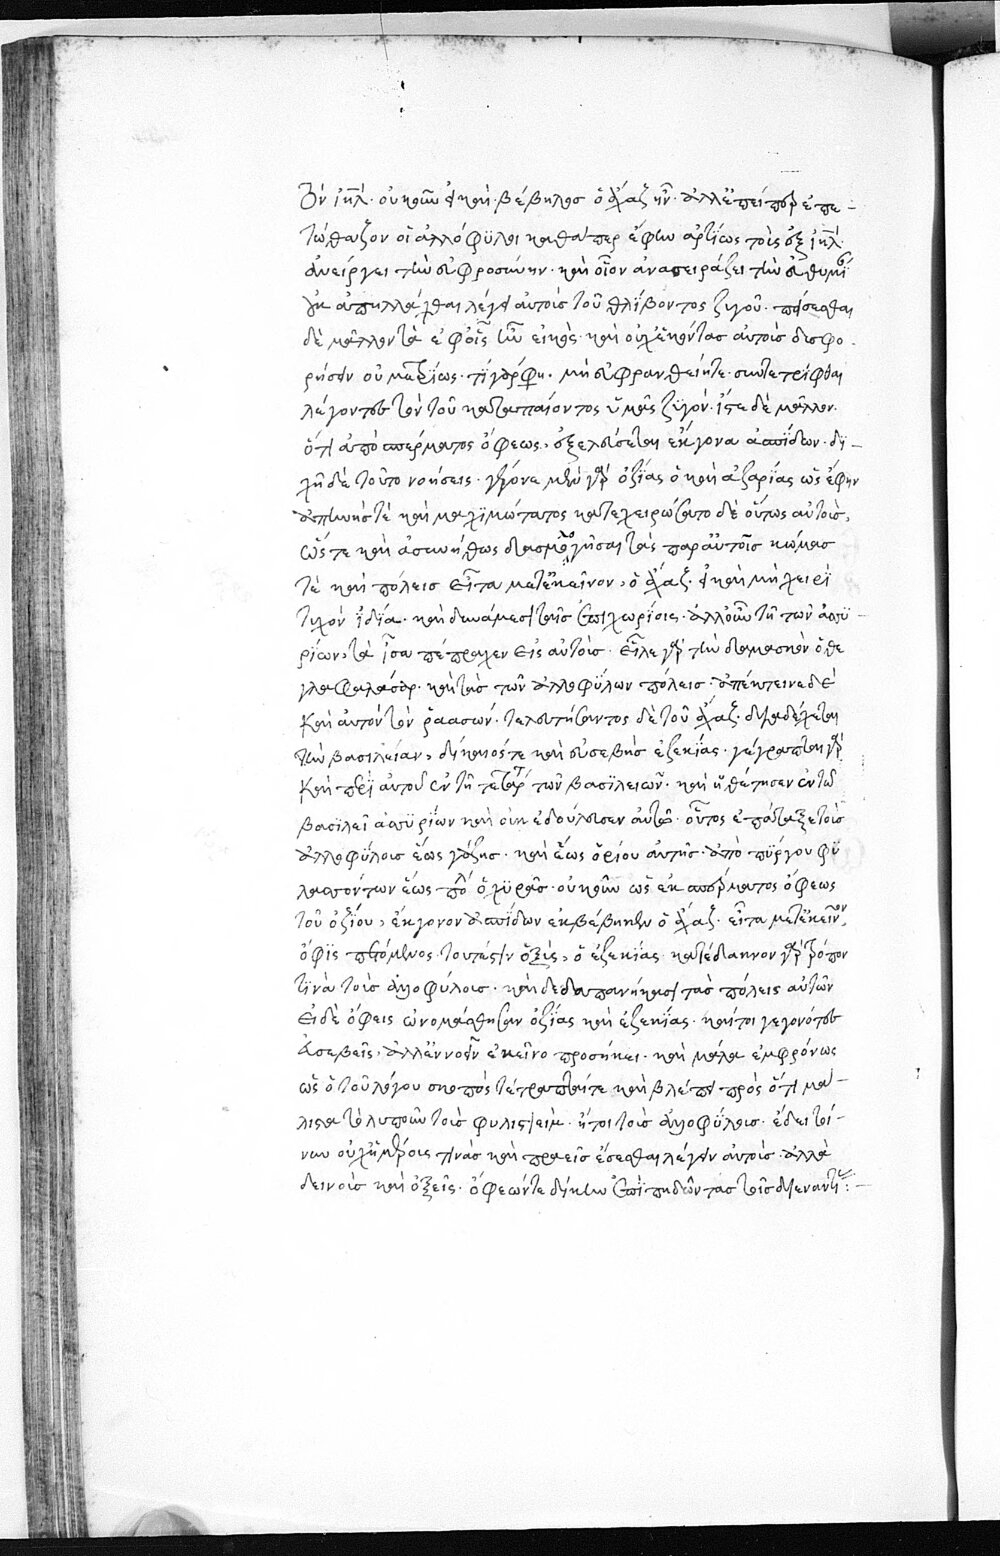 τὸν ἰη̅λ· οὐκοῦν εἰ καὶ βέβηλος ὁ ἄχαζ ἦν· ἀλλ' ἐπείπερ ἐπε-
τώθαζον οἱ ἀλλόφυλοι καθάπερ ἔφην ἀρτίως τοῖς ἐξ ἰη̅λ·
ἀνείργει τὴν εὐφροσύνην· καὶ οἷον ἀνασειράζει τὴν εὐθυμί
ἀπηλλάχθαι λέγειν αὐτοὺς τοῦ θλίβοντος ζυγοῦ· πείσεσθαι
δὲ μᾶλλον τὰ ἐφ' οἷς ἦν εἰκὸς· καὶ οὐχ ἑκόντας αὐτοὺς δυσφο-
ρήσειν οὐ μετρίως· τί γάρ φη· μὴ εὐφρανθείητε· συντετρίφθαι
λέγοντες τὸν τοῦ καταπαίοντος ὑμᾶς ζυγόν· ἴστε δὲ μᾶλλον·
ὅτι ἀπὸ σπέρματος ὄφεως, ἐξελεύσεται ἔκγονα ἀσπίδων· δι-
χῆ δὲ τοῦτο νοήσεις· γέγονε μὲν γὰρ ὀζίας ὁ καὶ ἀζαρίας ὡς ἔφην
ἀπηνής τε καὶ μαχιμώτατος κατεχειρώσατο δὲ οὕτως αὐτοὺς,
ὥστε καὶ ἀσυνήθως δασμολογῆσαι τὰς παρ' αὐτοῖς κώμας
τὲ καὶ πόλεις εἶτα μετ' ἐκεῖνον, ὁ ἄχαζ· εἰ καὶ μὴ χειρὶ
τυχὸν ἰδία· καὶ δυνάμεσι ταῖς ἐπιχωρίοις· ἀλλ' οὖν τῆ τῶν ἀσσυ-
ρίων, τὰ ἴσα πέπραχεν εἰς αὐτοὺς· εἷλε γὰρ τὴν δαμασκὸν ὁ θε
γλαφαλασὰρ· καὶ τὰς τῶν ἀλλοφύλων πόλεις· ἀπέκτεινε δὲ
καὶ αὐτὸν τὸν ῥαασών· τελευτήσαντος δὲ τοῦ ἄχαζ· διαδέχεται
τὴν βασιλείαν, δίκαιός τε καὶ εὐσεβὴς ἐζεκίας· γέγραπται γὰρ
καὶ περὶ αὐτοῦ ἐν τῆ τετάρτ τῶν βασιλειῶν· καὶ ἠθέτησεν ἐν τῶ
βασιλεῖ ἀσσυρίων καὶ οὐκ ἐδούλευσεν αὐτῶ· οὗτος ἐπάταξε τοὺς
ἀλλοφύλους ἕως γάζης· καὶ ἕως ὁρίου αὐτῆς· ἀπὸ πύργου φυ
λασσόντων ἕως πόλ ὀχυρᾶς· οὐκοῦν ὡς ἐκ σπέρματος ὄφεως
τοῦ ὀζίου, ἔκγονον ἀσπίδων ἐκβέβηκεν ὁ ἄχαζ· εἶτα μετ' ἐκεῖνον,
ὄφις πετόμενος· τουτέστιν ὀξὺς, ὁ ἐζεκίας κατέδακνον γὰρ τρόπον
τινὰ τοὺς ἀλλοφύλους· καὶ δεδαπανήκασι τὰς πόλεις αὐτῶν
εἰ δὲ ὄφεις ὠνομάσθησαν ὀζίας καὶ ἐζεκίας· καίτοι γεγονότες
εὐσεβεῖς, ἀλλ' ἐννοεῖν ἐκεῖνο προσήκει· καὶ μάλα ἐμφρόνως
ὡς ὁ τοῦ λόγου σκοπὸς τέτραπταί τε καὶ βλέπει πρὸς ὅτι μά-
λιστα τὸ λυποῦν τοὺς φυλιστιείμ· ἤτοι τοὺς ἀλλοφύλους· ἔδει τοί-
νυν οὐχ ἡμέρους τινὰς καὶ πραεῖς ἔσεσθαι λέγειν αὐτοὺς· ἀλλὰ
δεινοὺς καὶ ὀξεῖς· ὄφεών τε δίκην ἐπιπηδῶντας τοῖς δι' ἐναντί